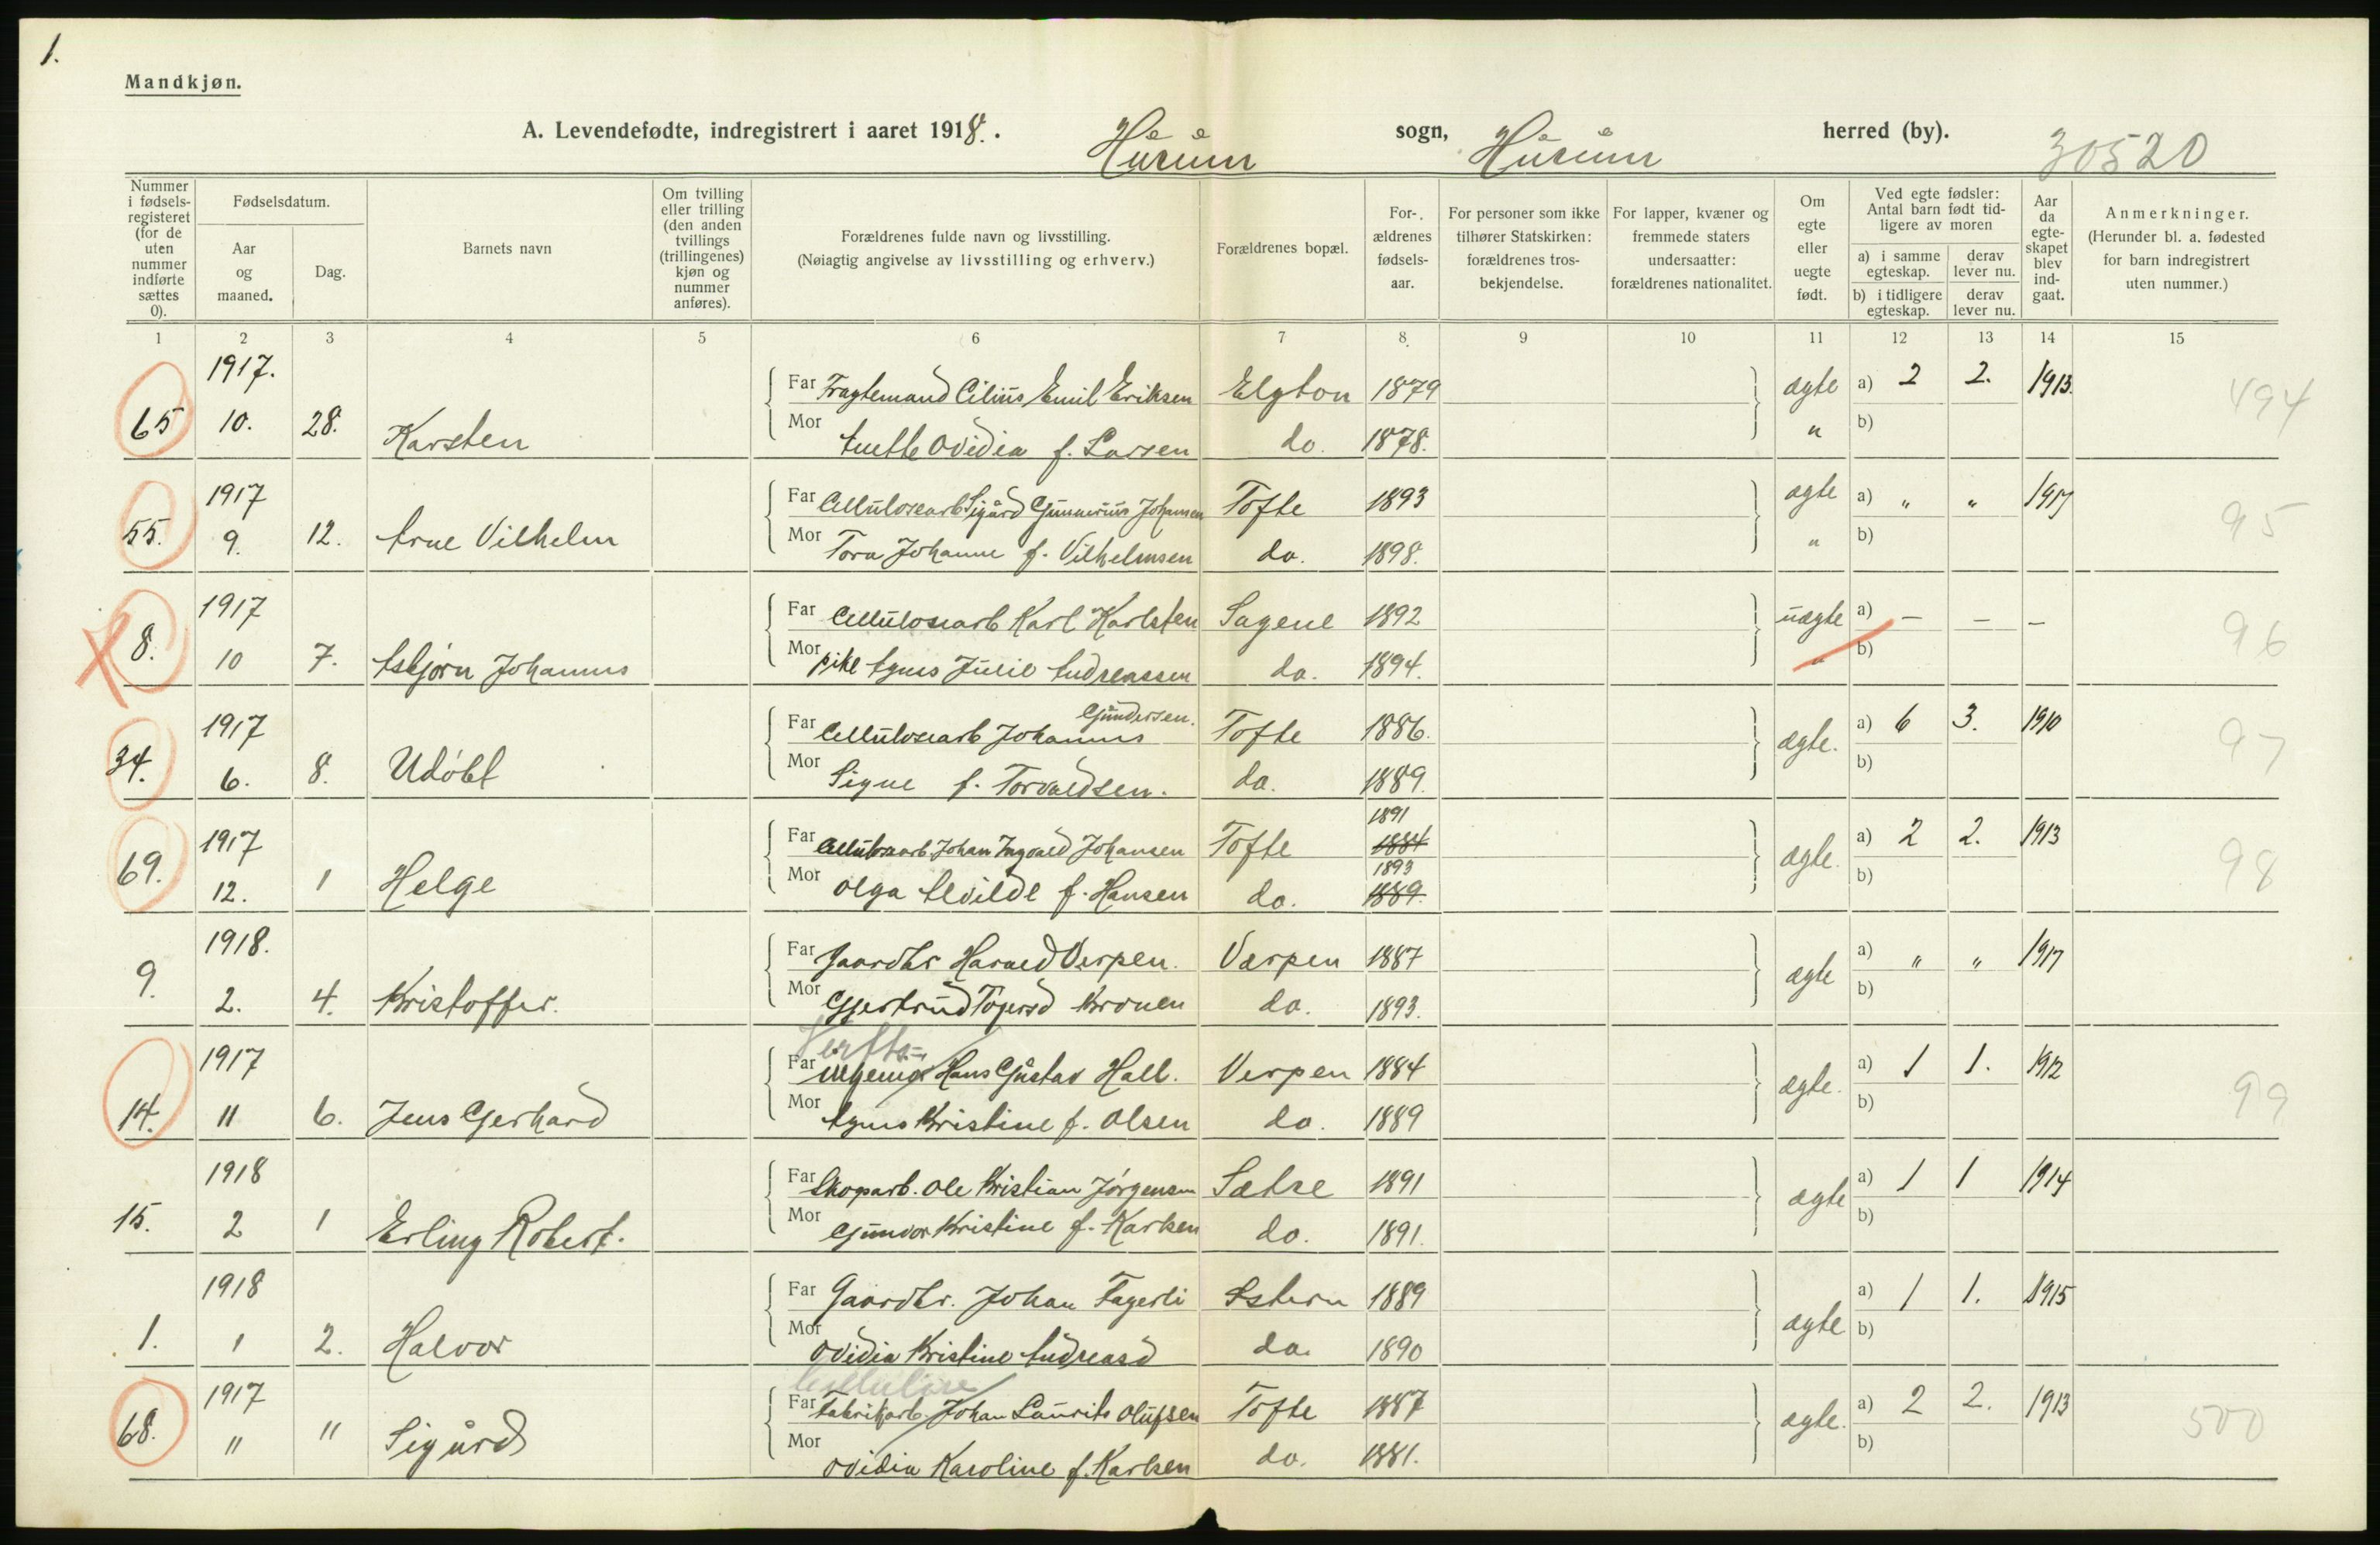 1.
Mandkjøn.
A. Levendefødte, indregistrert i aaret 1918. Hurum sogn, Hurum herred (by). 30520
Nummer i fødselsregisteret (for de uten nummer indførte sættes 0).
Fødselsdatum.
Aar og maaned.
Dag.
Barnets navn
Om tvilling eller trilling (den anden tvillings (trillingenes) kjøn og nummer anføres).
Forældrenes fulde navn og livsstilling.
(Nøiagtig angivelse av livsstilling og erhverv.)
Forældrenes bopæl.
For-ældrenes fødsels-aar.
For personer som ikke tilhører Statskirken: forældrenes tros-bekjendelse.
For lapper, kvæner og fremmede staters undersaatter: forældrenes nationalitet.
Om egte eller uegte født.
Ved egte fødsler: Antal barn født tid-ligere av moren
a) i samme egteskap. derav lever nu.
b) i tidligere egteskap. derav lever nu.
Aar da egte-skapet blev ind-gaat.
Anmerkninger.
(Herunder bl. a. fødested for barn indregistrert uten nummer.)
1 2 3 4 5 6 7 8 9 10 11 12 13 14 15
1917. Far Fragtemand Cilius Emil Eriksen Elgton 1879 ægte a) 2 2. 1913. 494
65 10. 28. Karsten Mor Anette Ovidia f. Larsen do. 1878. " b)
1917 Far Cellulosearb Sigurd Gunnerius Johansen Tofte 1893 ægte a) " " 1917 95
55. 9. 12. Arne Vilhelm Mor Tora Johanne f. Vilhelmsen do. 1898. " b)
1917 Far Cellulosearb Karl Karlsten Sagene 1892 uægte a) — — — 96
8. 10 7. Asbjørn Johannes Mor pike Agnes Julie Andreassen do. 1894. " b)
1917 Far Cellulosearb Johannes Gundersen. Tofte 1886. ægte. a) 6 3. 1910 97
34. 6. 8. Udøbt Mor Signe f. Torvaldsen. do. 1889. b)
1891
1917 Far Cellulosearb Johan Ingvald Johansen Tofte 1884 ægte. a) 2 2. 1913 98
1893
69. 12. 1 Helge Mor Olga Alvilde f. Hansen do. 1889. b)
1918. Far Gaardbr Harald Verpen. Værpen 1887 ægte a) " " 1917
9. 2. 4. Kristoffer. Mor Gjertrud Togersd Kronen do. 1893. b)
1917 Far Hans Gustav Hall. Verpen 1884 ægte. a) 1 1. 1912 99
14. 11 6. Jens Gerhard Mor Agnes Kristine f. Olsen do. 1889 b)
1918 Far Skogarb. Ole Kristian Jørgensen Sætre 1891 ægte a) 1 1 1914
15. 2 1 Erling Robert. Mor Gunvor Kristine f. Karlsen do. 1891. b)
1918 Far Gaardbr. Johan Fagerli 1889 ægte a) 1 1. 1915
1. 1 2. Halvor Mor Ovidia Kristine Andreasd do. 1890 b)
Cellulose
1917 Far Fabrikarb. Johan Laurits Olufsen Tofte 1887 ægte. a) 2 2. 1913 500
68. " " Sigurd Mor Ovidia Karoline f. Karlsen do. 1881. b)